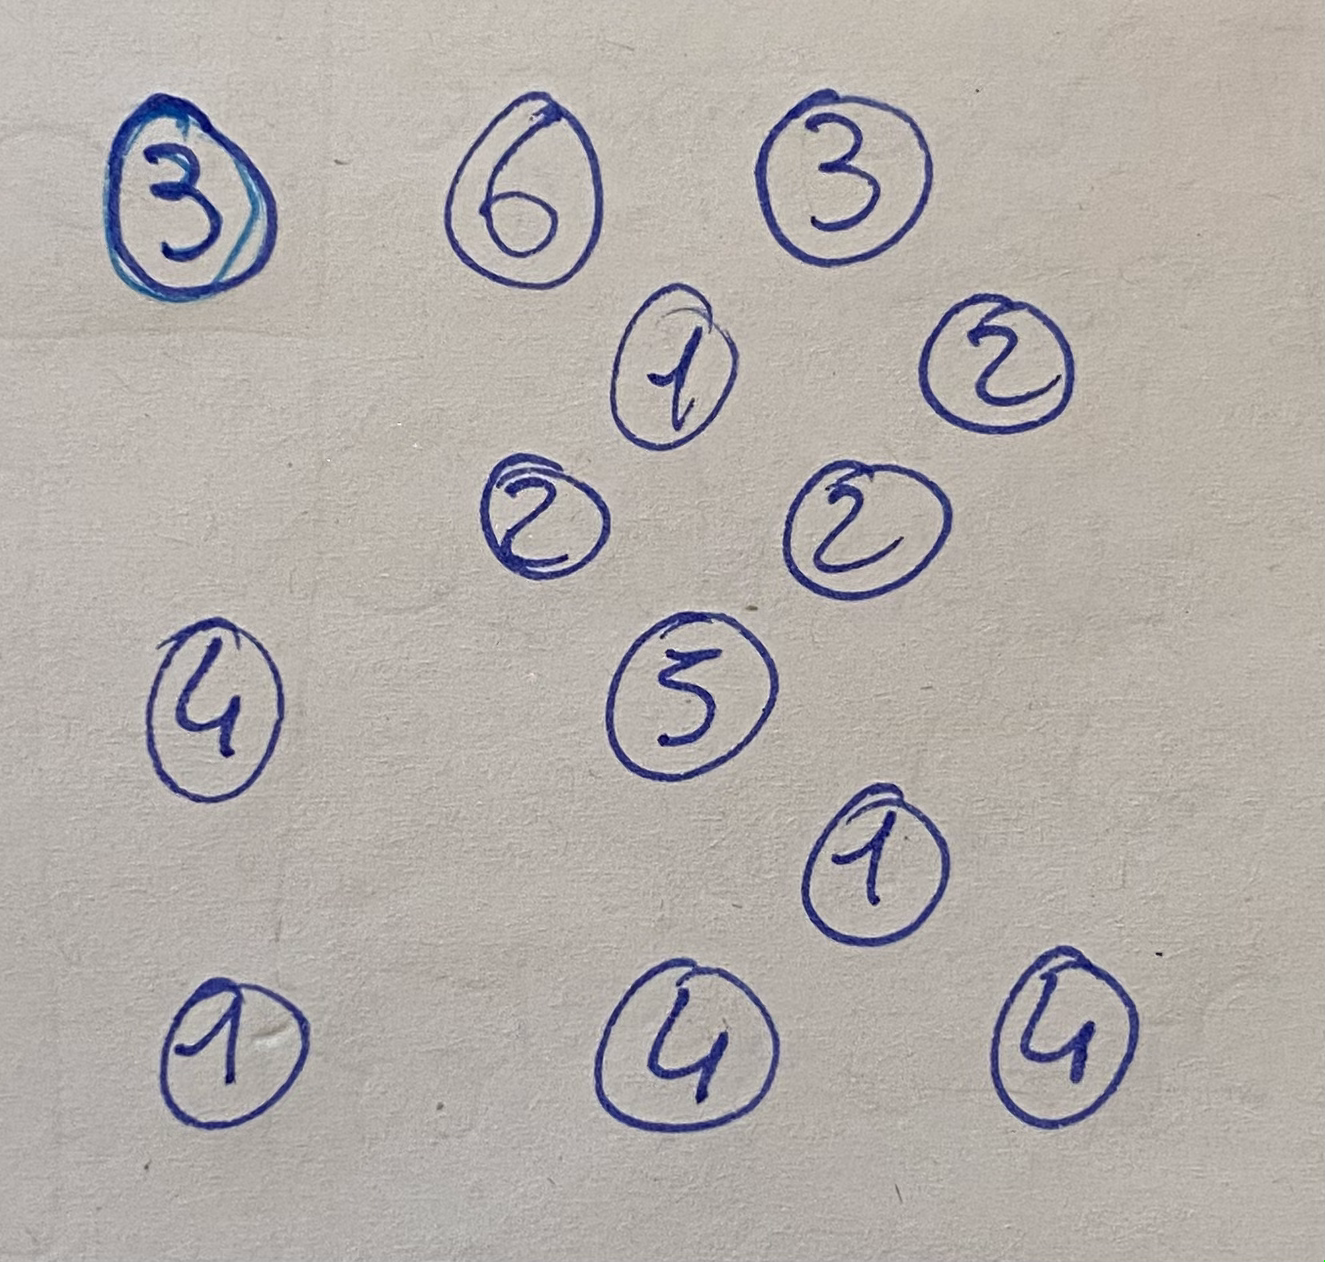 3 6 3
1 2
2 2
4 5
1
1 4 4